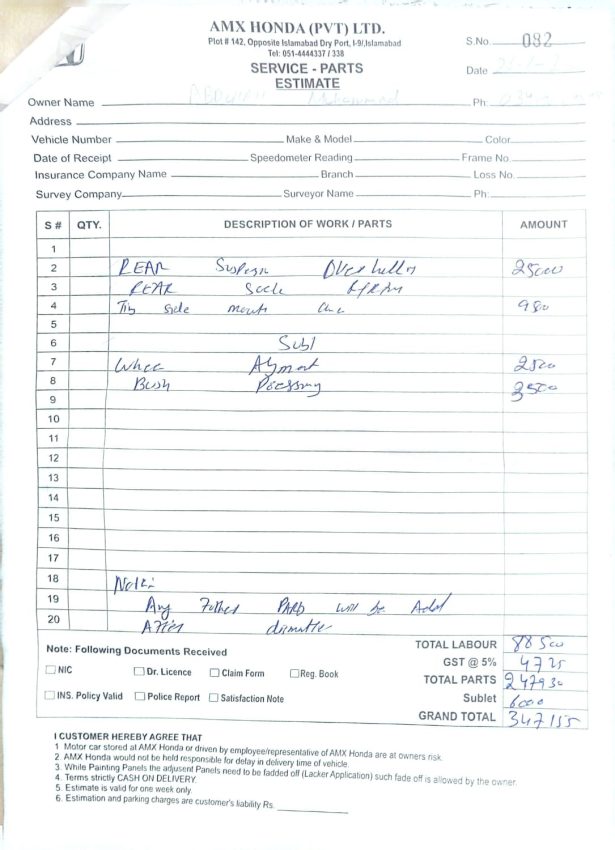 AMX HONDA (PVT) LTD.
Plot # 142, Opposite Islamabad Dry Port, I-9/,Islamabad
Tel: 051-4444337 / 338
SERVICE - PARTS
ESTIMATE
S.No. 082
Date
Owner Name Ph:
Address
Vehicle Number Make & Model Color
Date of Receipt Speedometer Reading Frame No.
Insurance Company Name Branch Loss No.
Survey Company Surveyor Name Ph:
S # QTY. DESCRIPTION OF WORK / PARTS AMOUNT
1
2 REAR 25000
3 REAR
4 side 980
5
6 Subl
7 2500
8 Bush 3500
9
10
11
12
13
14
15
16
17
18 Note:
19 Any will be Add
20
Note: Following Documents Received
NIC Dr. Licence Claim Form Reg. Book
INS. Policy Valid Police Report Satisfaction Note
TOTAL LABOUR 88500
GST @ 5% 4725
TOTAL PARTS 247930
Sublet 6000
GRAND TOTAL 347155
I CUSTOMER HEREBY AGREE THAT
1 Motor car stored at AMX Honda or driven by employee/representative of AMX Honda are at owners risk.
2. AMX Honda would not be held responsible for delay in delivery time of vehicle.
3. While Painting Panels the adjusent Panels need to be fadded off (Lacker Application) such fade off is allowed by the owner.
4. Terms strictly CASH ON DELIVERY.
5. Estimate is valid for one week only.
6. Estimation and parking charges are customer's liability Rs.